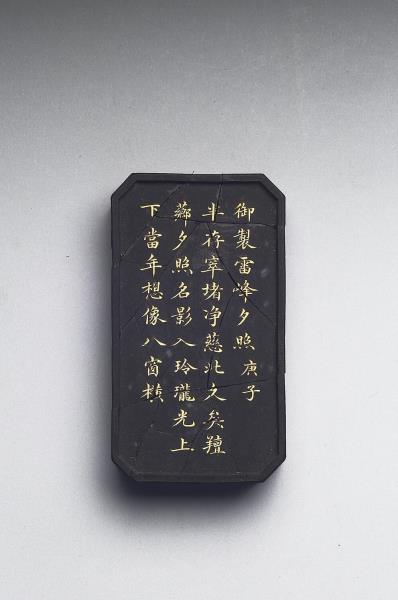 御製雷峰夕照庚子
半存窣堵净慈北久矣羶
薌夕照名影入玲瓏光上
下當年想像八窗